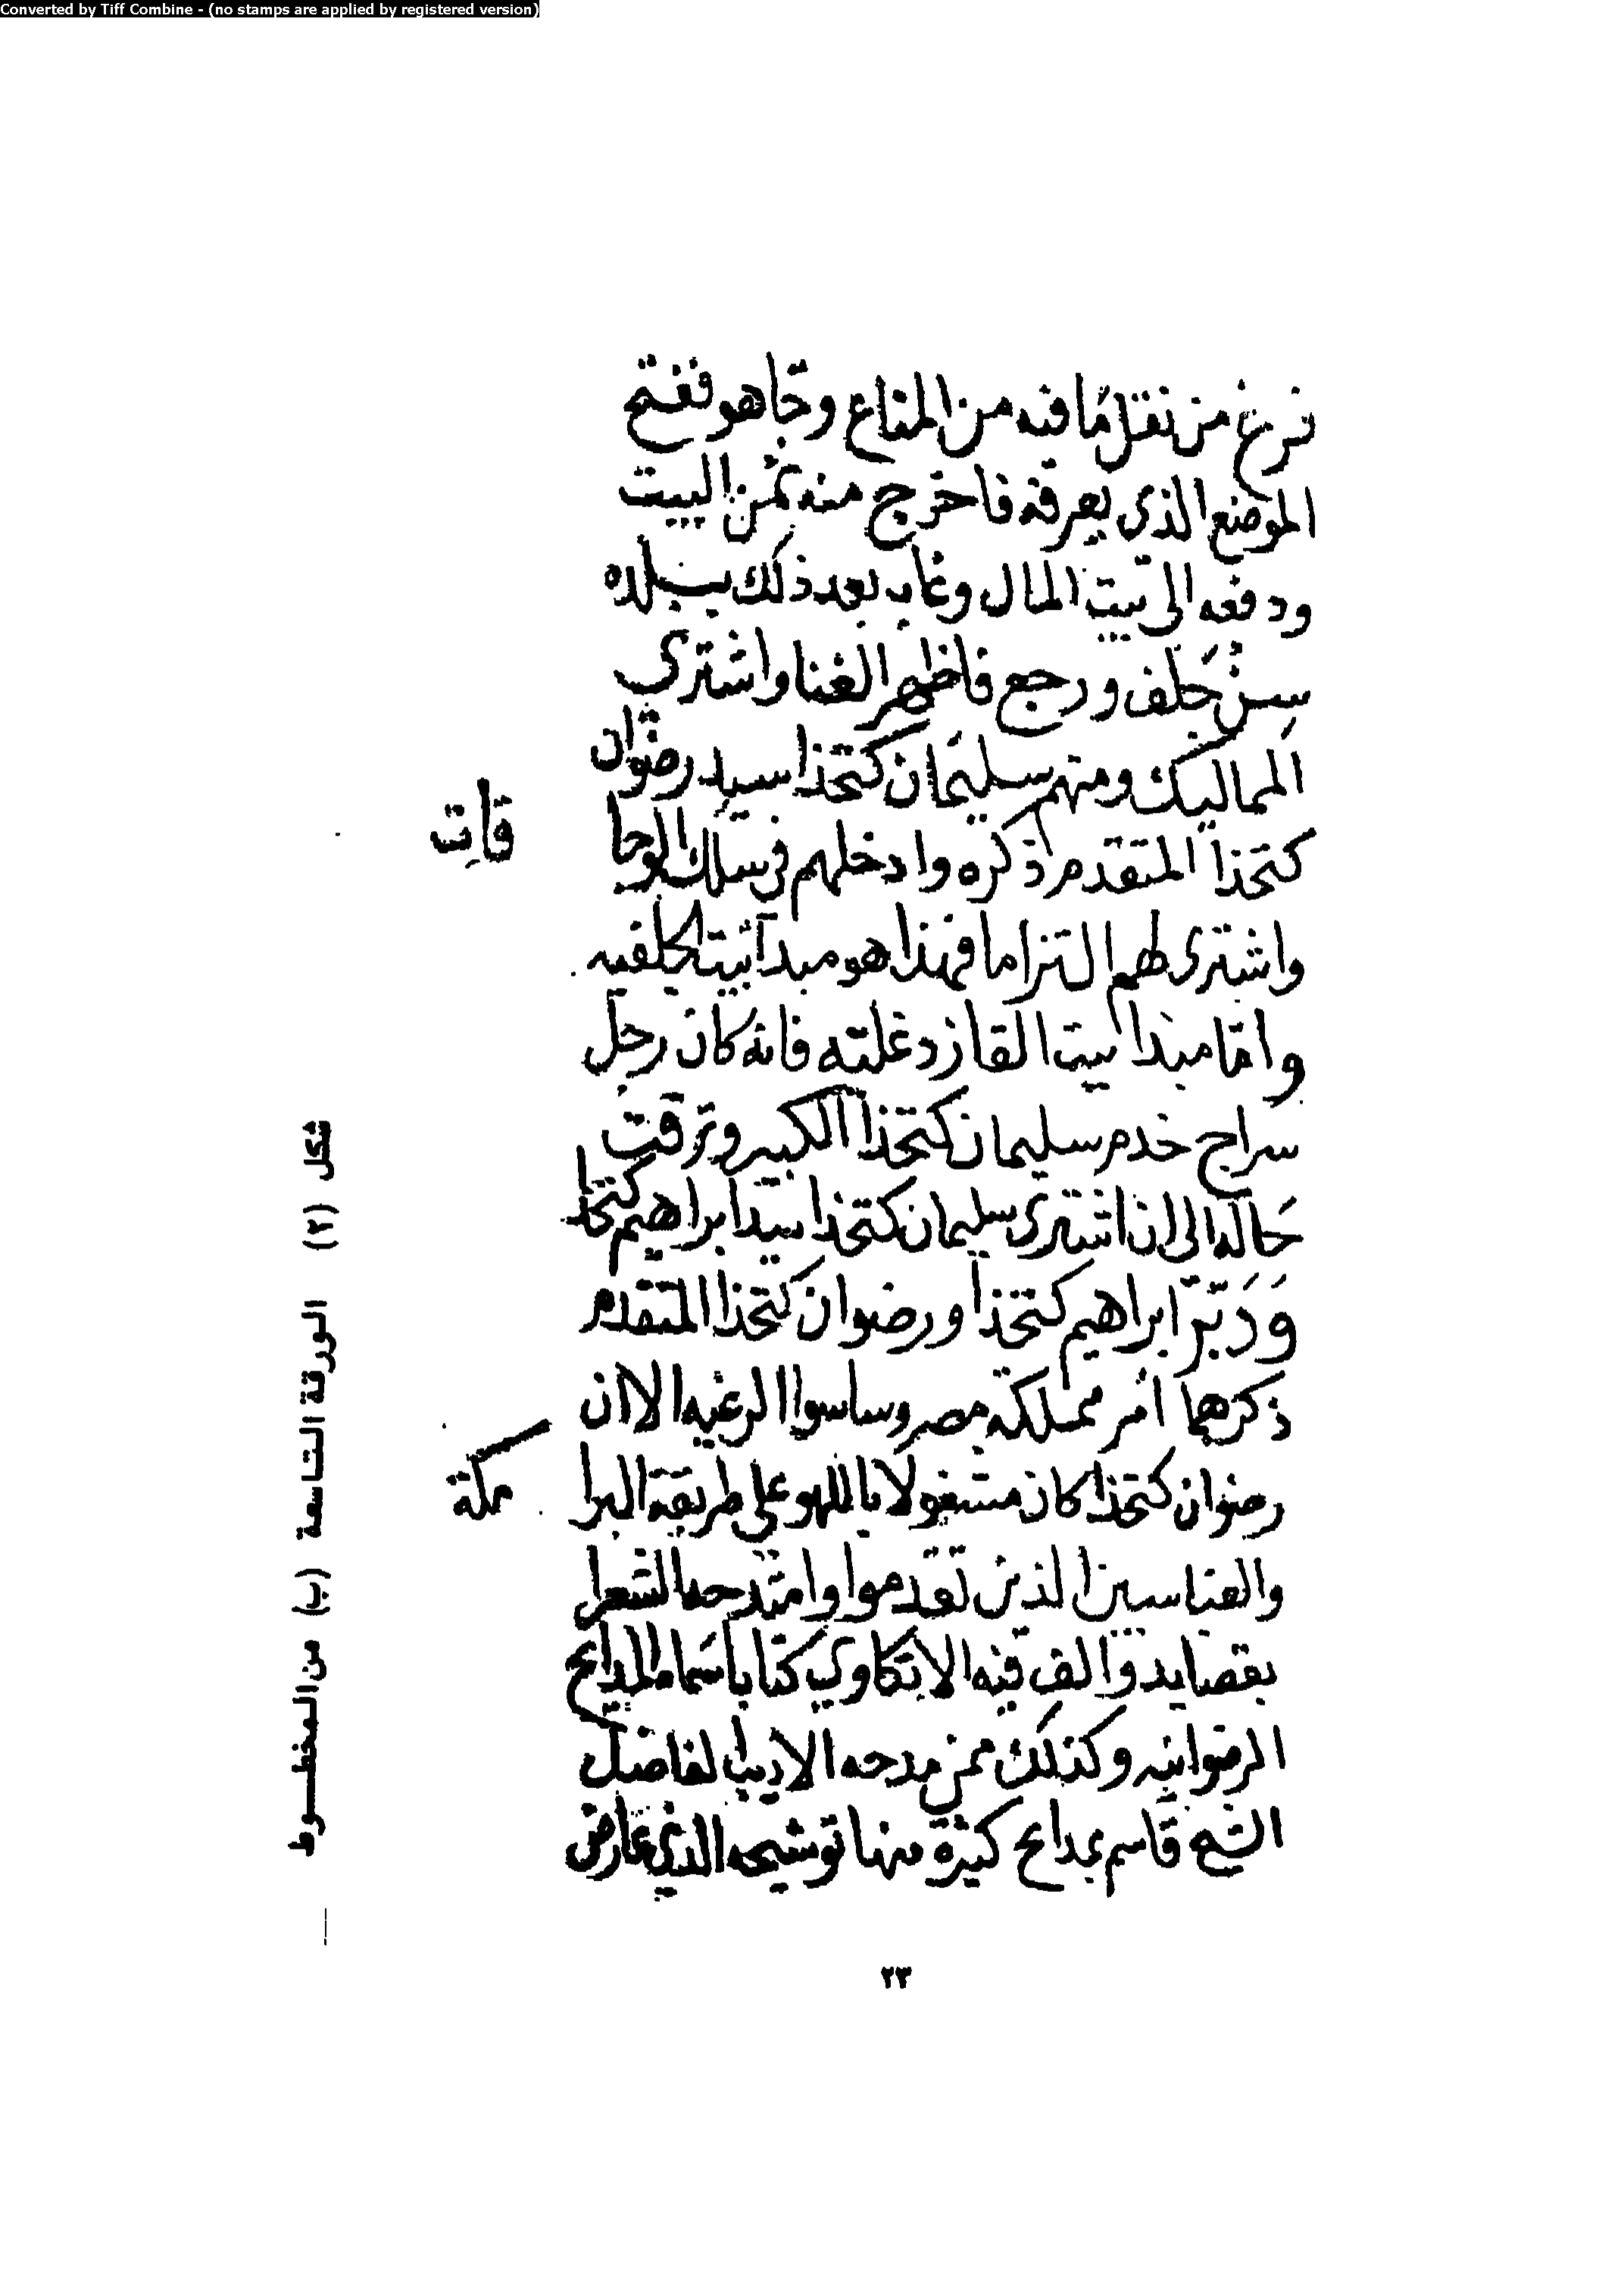 Converted by Tiff Combine - (no stamps are applied by registered version)
فرغ من نقل ما فيه من المتاع وجا هو ففتح
الموضع الذى يعرفه فاخرج منه ثمن البيت
ودفعه الى بيت المال وغاب بعد ذلك ببلده
سنجلف ورجع فاظهر الغنا واشتري
المماليك ومنهم سليمان كتخذا سيد رضوان
كتخذا المتقدم ذكره وادخلهم فى سلك الوجا
قات
واشترى لهم التزاما فهذا هو مبدا بيت الجلفيه
واما مبدا بيت القازدغليه فانه كان رجل
سراج خدم سليمان كتخذا الكبير وترقت
حاله الى ان اشترى سليمان كتخذا سيد ابراهيم كتخذا
ودبر ابراهيم كتخذا ورضوان كتخذا المتقدم
ذكرهما امر مملكة مصر وساسوا الرعيه الا ان
رضوان كتخذا كان مشغولا باللهو على طريقة البرا
مكة
والعباسين الذين تقدموا وامتدحه الشعرا
بقصايد والف فيه الادكاوي كتابا سماه المدايح
الرضوانيه وكذلك ممن مدحه الاديب الفاضل
الشيخ قاسم بمدايح كثيرة منها توشيحه الذي عارض
شكل (٢) الورقة التاسعة (ب) من المخطوط
٢٣